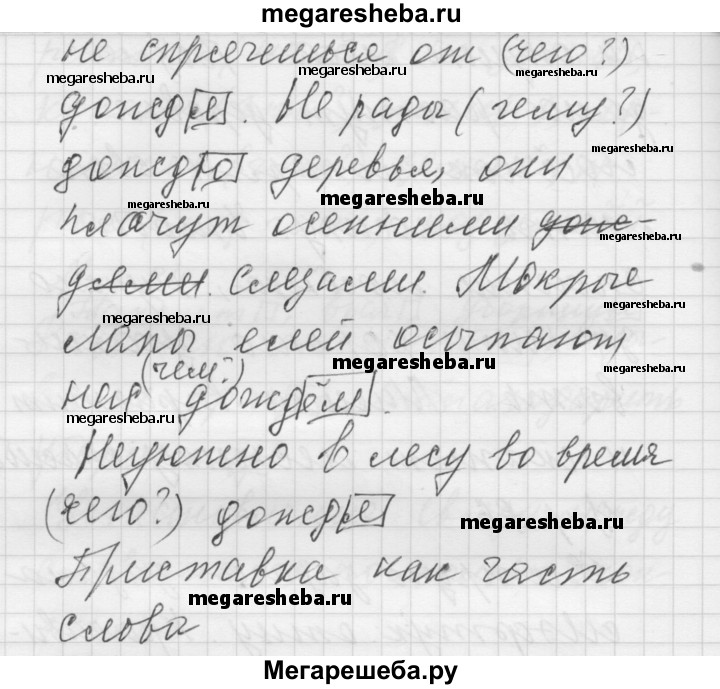 megaresheba.ru
не спрячешься от (чего?)
megaresheba.ru megaresheba.ru megaresheba.ru
дождя. Не рады (чему?)
megaresheba.ru
дождю деревья, они
megaresheba.ru megaresheba.ru
плачут осенними дож-
megaresheba.ru
дями. слезами. Мокрые
лапы елей осыпают
megaresheba.ru megaresheba.ru
(чем?)
нас дождём.
megaresheba.ru
Неуютно в лесу во время
(чего?) дождя
megaresheba.ru
Приставка как часть
megaresheba.ru
слова
Мегарешеба.ру